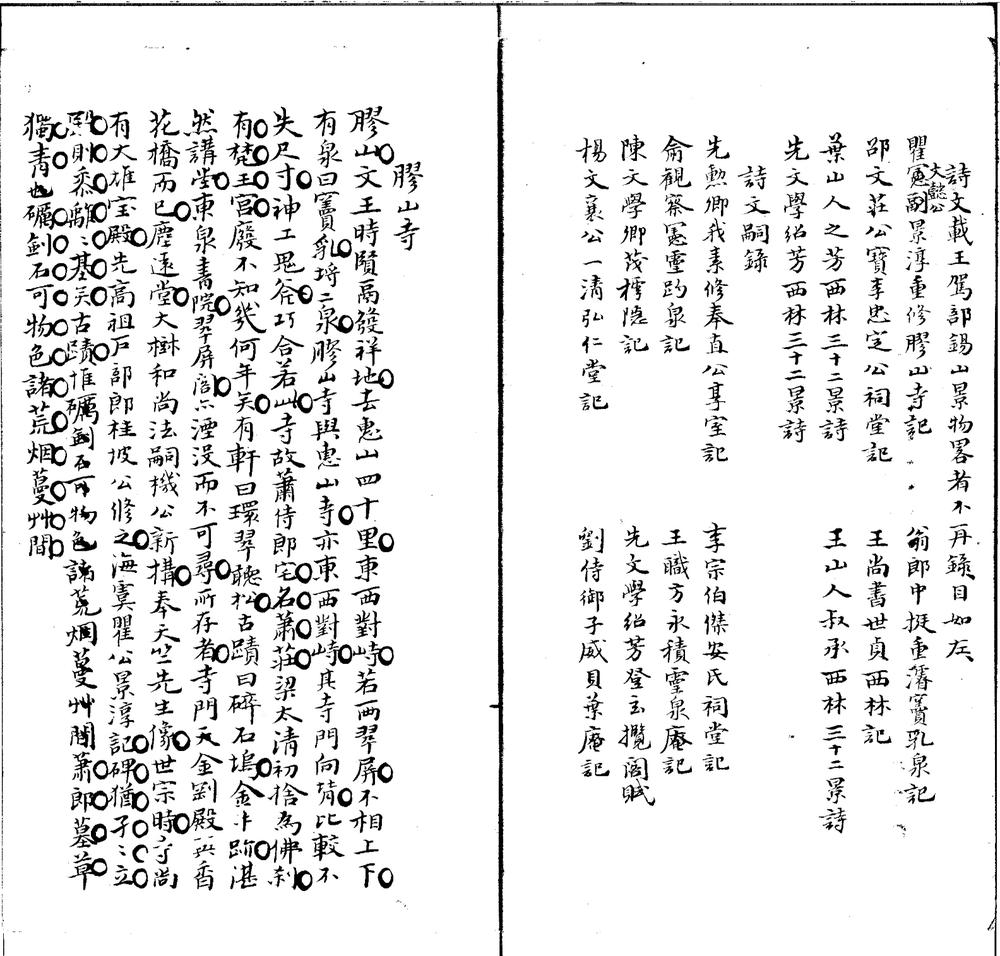 詩文載王駕部錫山景物畧者不再錄目如左
瞿憲副景淳重修膠山寺記
文懿公
翁郎中挺重濬竇乳泉記
邵文莊公寶李忠定公祠堂記
王尚書世貞西林記
葉山人之芳西林三十二景詩
王山人叔承西林三十二景詩
先文學紹芳西林三十二景詩
詩文嗣錄
先勲卿我素修奉直公享室記
李宗伯傑安氏祠堂記
俞觀察憲靈趵泉記
王職方永積靈泉庵記
陳文學卿茂樗隱記
先文學紹芳登玄攬閣賦
楊文襄公一清弘仁堂記
劉侍御子威貝葉庵記
膠山寺
膠山文王時賢鬲發祥地去惠山四十里東西對峙若兩翠屏不相上下
有泉曰竇乳埒二泉膠山寺與惠山寺亦東西對峙其寺門向背比較不
失尺寸神工鬼斧巧合若此寺故蕭侍郎宅名蕭莊梁太清初捨為佛刹
有梵王宮廢不知幾何年矣有軒曰環翠聽松古蹟曰碎石塢金牛跡湛
然講堂東泉書院翠屏閣亦湮没而不可尋所存者寺門天金剛殿與香
花橋而已塵遠堂大樹和尚法嗣機公新搆奉天竺先生像世宗時寺尚
有大雄宝殿先高祖戶部郎桂坡公修之海虞瞿公景淳記碑猶孑〻立
則黍離〻基矣古蹟惟礪劍石可物色諸荒烟蔓艸間蕭郎墓草
獨青也礪劍石可物色諸荒烟蔓艸間